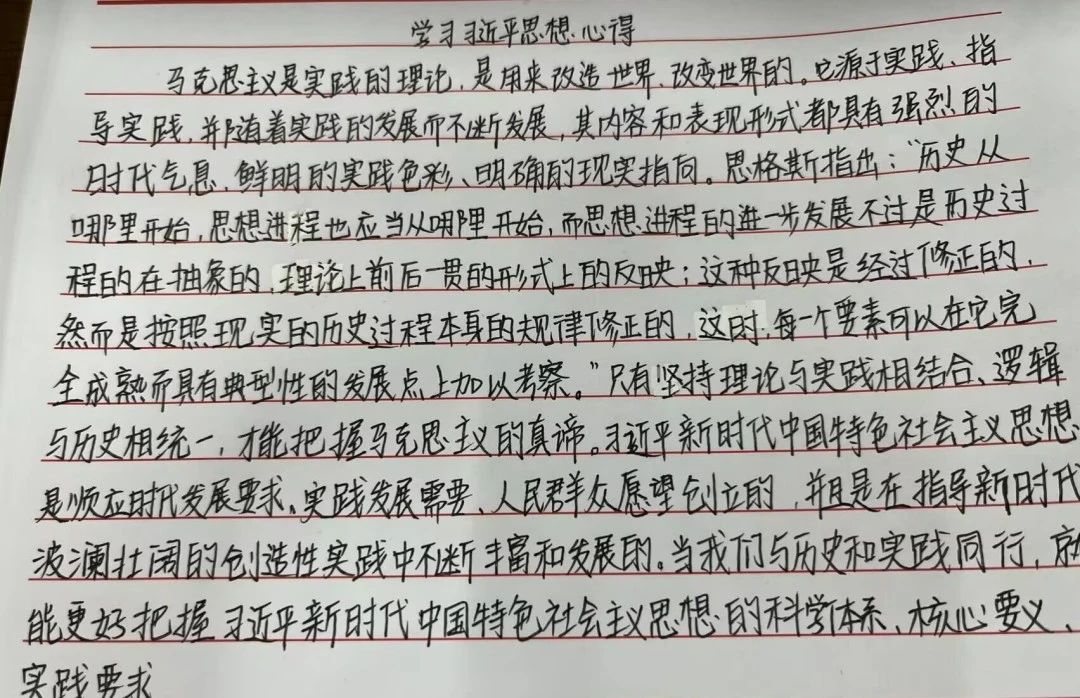 学习习近平思想心得
马克思主义是实践的理论,是用来改造世界、改变世界的。它源于实践、指
导实践,并随着实践的发展而不断发展,其内容和表现形式都具有强烈的
时代气息、鲜明的实践色彩、明确的现实指向。恩格斯指出:“历史从
哪里开始,思想进程也应当从哪里开始,而思想进程的进一步发展不过是历史过
程的在抽象的、理论上前后一贯的形式上的反映;这种反映是经过修正的,
然而是按照现实的历史过程本身的规律修正的,这时,每一个要素可以在它完
全成熟而具有典型性的发展点上加以考察。”只有坚持理论与实践相结合、逻辑
与历史相统一,才能把握马克思主义的真谛。习近平新时代中国特色社会主义思想
是顺应时代发展要求、实践发展需要、人民群众愿望创立的,并且是在指导新时代
波澜壮阔的创造性实践中不断丰富和发展的。当我们与历史和实践同行,就
能更好把握习近平新时代中国特色社会主义思想的科学体系、核心要义、
实践要求